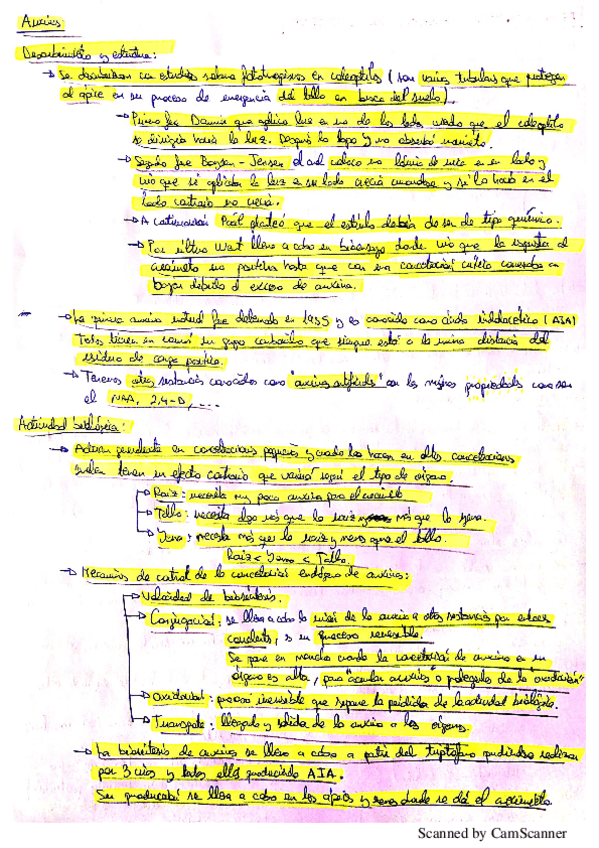 Auxinas
Descubrimiento y estructura:
→ Se descubrieron con estudios sobre fototropismos en coleoptilos (son vainas tubulares que protegen
al ápice en su proceso de emergencia del tallo en busca del suelo).
→ Primero fue Darwin que aplica luz en uno de los lados viendo que el coleoptilo
se dirigía hacia la luz. Después lo tapó y no observó movimiento.
→ Segundo fue Boysen-Jensen el cual coloco una lámina de mica en un lado y
vio que si aplicaba la luz en su lado crecía curvandose y si lo hacía en el
lado contrario no crecía.
→ A continuación Paál planteó que el estímulo debía de ser de tipo químico.
→ Por último Went llevo a cabo un bioensayo donde vio que la respuesta al
crecimiento era positiva hasta que con una concentración crítica comenzaba a
bajar debido al exceso de auxina.
→ La primera auxina natural fue detectada en 1935 y es conocida como ácido indolacético (AIA)
Todas tienen en común un grupo carboxilo que siempre está a la misma distancia del
residuo de carga positiva.
→ Tenemos otras sustancias conocidas como "auxinas artificiales" con las mismas propiedades como son
el NAA, 2,4-D, ...
Actividad biológica:
→ Actúan generalmente en concentraciones pequeñas y cuando lo hacen en altas concentraciones
suelen tener un efecto contrario que variará según el tipo de órgano.
→ Raíz: necesita muy poca auxina para el crecimiento
→ Tallo: necesita algo más que la raíz y más que la yema.
→ Yema: necesita más que la raíz y menos que el tallo.
Raíz < Yema < Tallo.
→ Mecanismos de control de la concentración endógena de auxinas:
→ Velocidad de biosíntesis.
→ Conjugación: se lleva a cabo la unión de la auxina a otras sustancias por enlaces
covalentes, es un proceso reversible.
Se pone en marcha cuando la concentración de auxina en un
órgano es alta, para "acumular auxinas" o protegerlas de la oxidación"
→ Oxidación: proceso irreversible que supone la pérdida de la actividad biológica.
→ Transporte: llegada y salida de la auxina a los órganos.
→ La biosíntesis de auxinas se lleva a cabo a partir del triptófano pudiéndose realizar
por 3 vías y todas ellas produciendo AIA.
Su producción se lleva a cabo en los ápices y zonas donde se dá el crecimiento.
Scanned by CamScanner